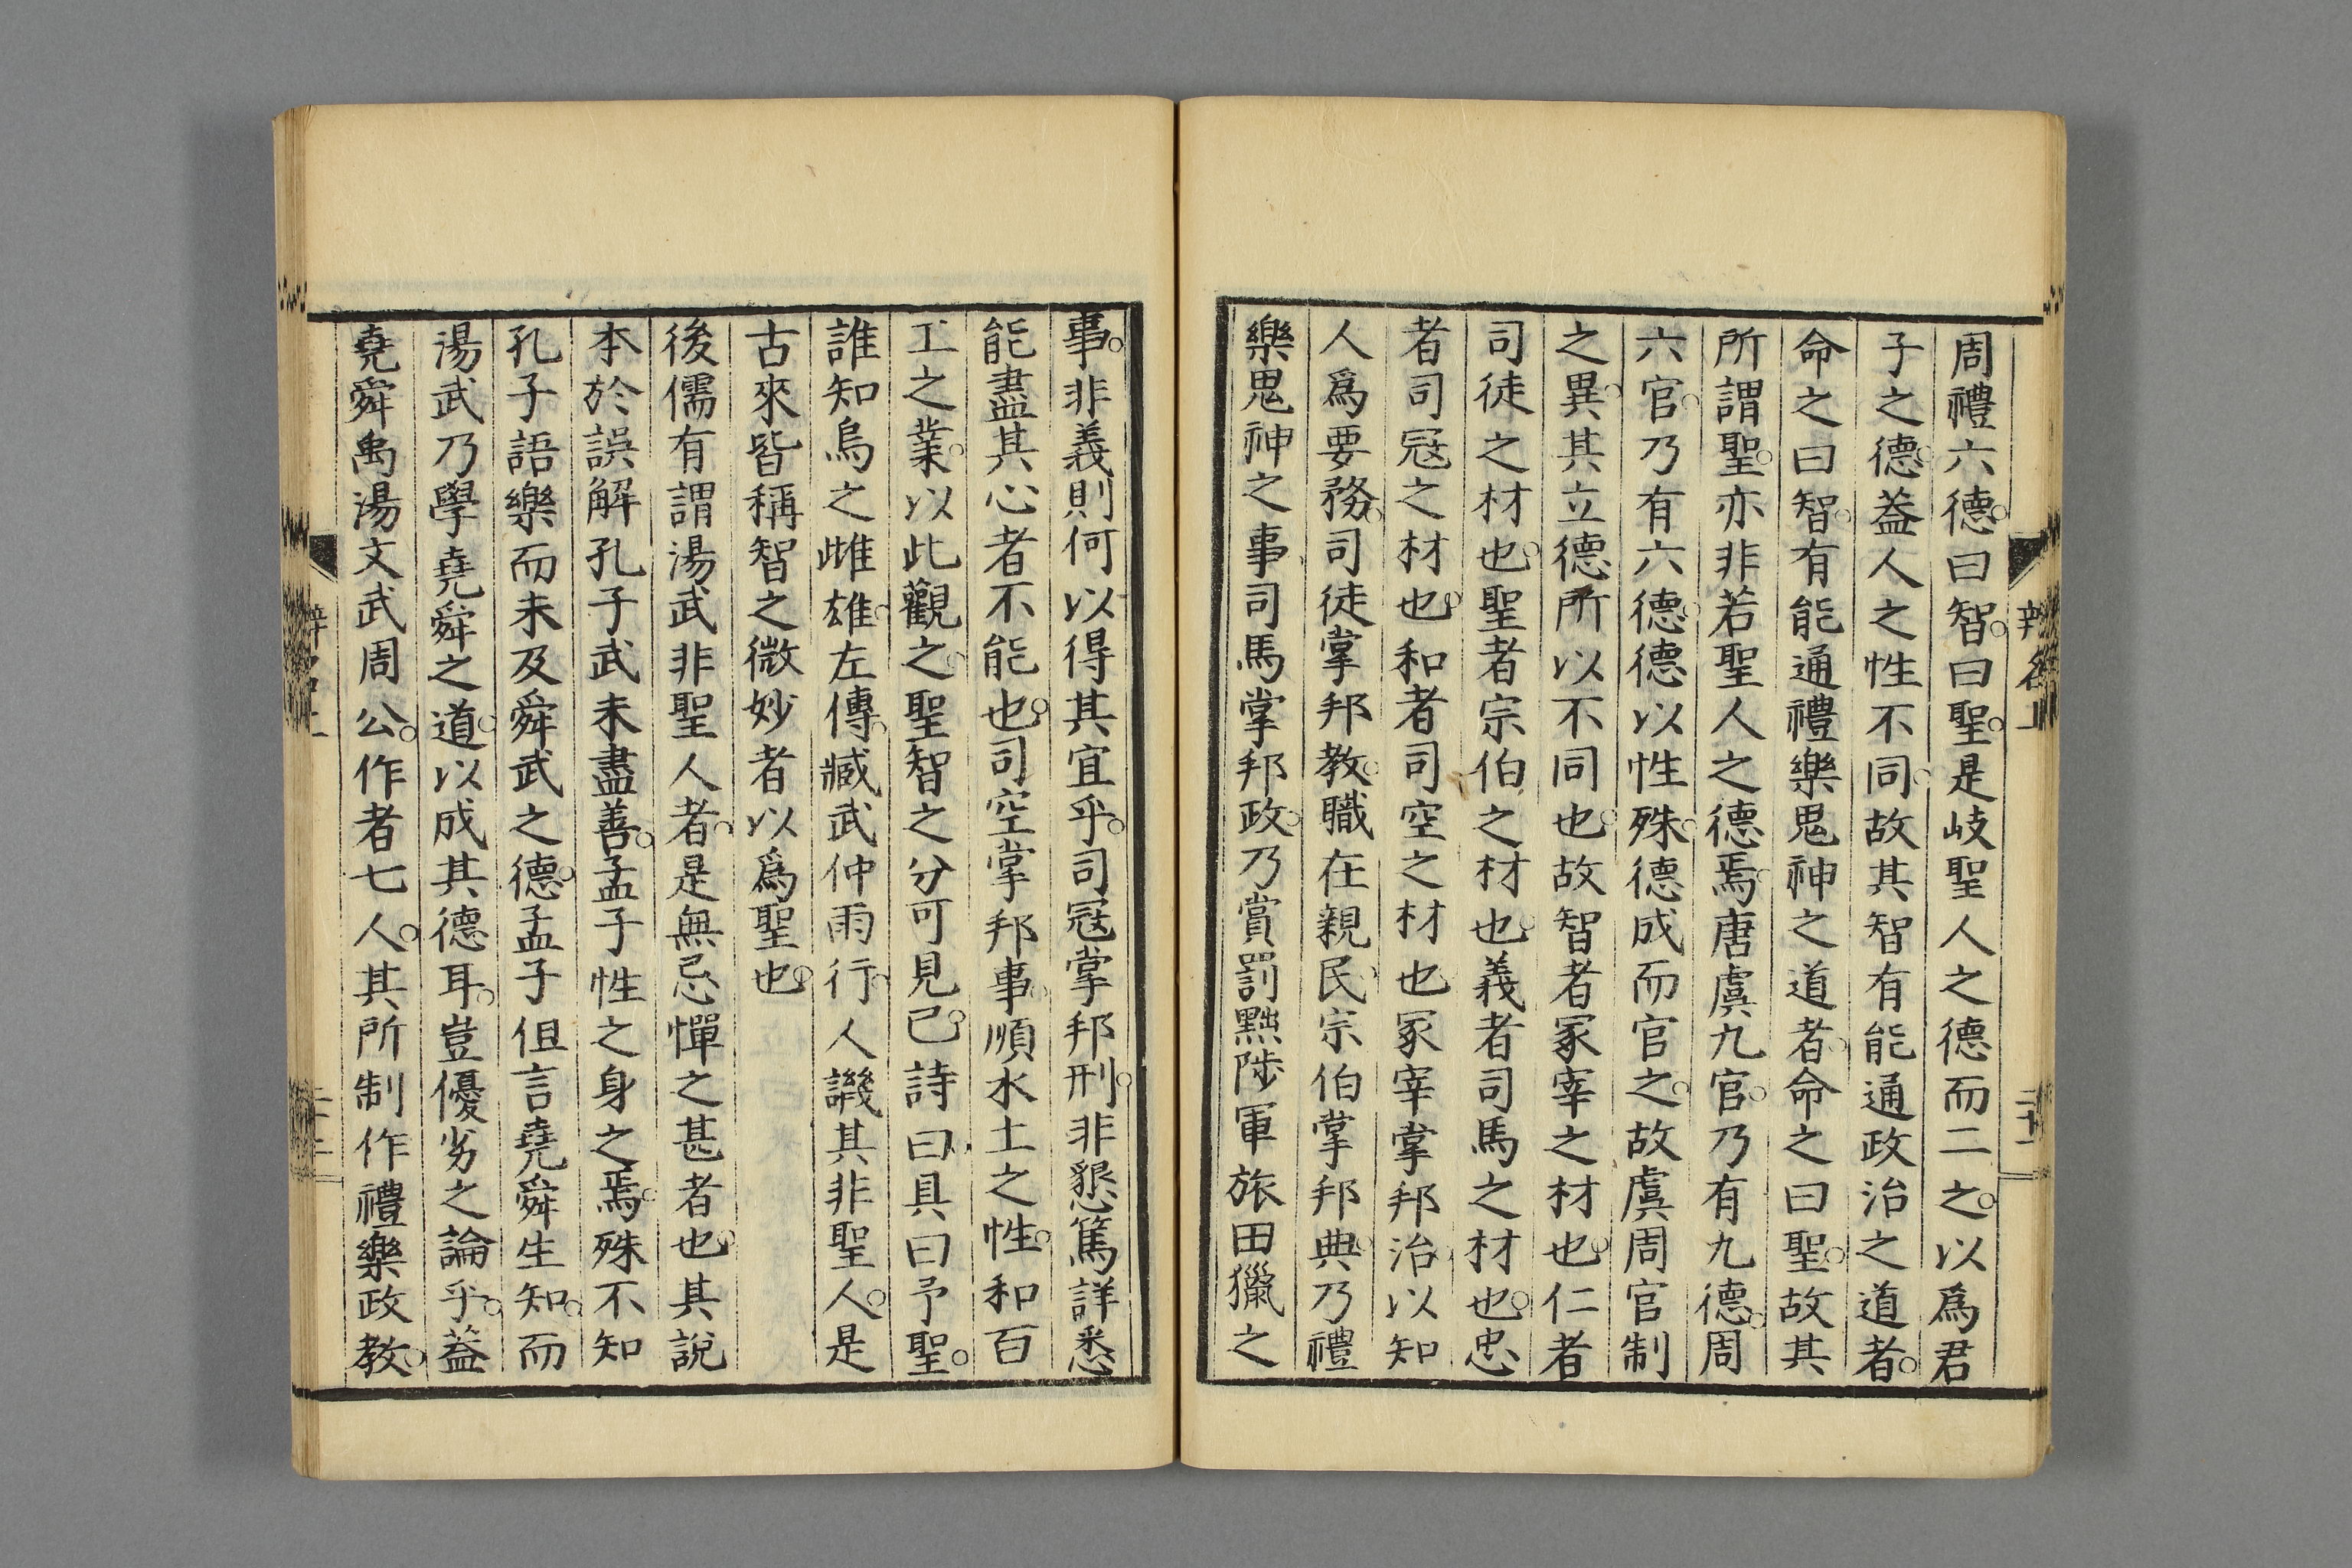 周禮六德。曰智。曰聖。是歧聖人之德而二之。以爲君
子之德。蓋人之性不同。故其智有能通政治之道者。
命之曰智。有能通禮樂鬼神之道者。命之曰聖。故其
所謂聖。亦非若聖人之德焉。唐虞九官。乃有九德。周
六官。乃有六德。德以性殊。德成而官之。故虞周官制
之異。其立德所以不同也。故智者冢宰之材也。仁者
司徒之材也。聖者宗伯之材也。義者司馬之材也。忠
者司冦之材也。和者司空之材也。冢宰掌邦治。以知
人爲要務。司徒掌邦教。職在親民。宗伯掌邦典。乃禮
樂鬼神之事。司馬掌邦政。乃賞罰黜陟軍旅田獵之
辨名上
二十一
事。非義則何以得其宜乎。司冦掌邦刑。非懇篤詳悉
能盡其心者不能也。司空掌邦事。順水土之性。和百
工之業。以此觀之。聖智之分可見已。詩曰。具曰予聖。
誰知烏之雌雄。左傳。臧武仲雨行。人譏其非聖人。是
古來皆稱智之微妙者以爲聖也。
後儒有謂湯武非聖人者。是無忌憚之甚者也。其說
本於誤解孔子武未盡善。孟子性之身之焉。殊不知
孔子語樂而未及舜武之德。孟子但言堯舜生知。而
湯武乃學堯舜之道。以成其德耳。豈優劣之論乎。蓋
堯舜禹湯文武周公。作者七人。其所制作禮樂政教。